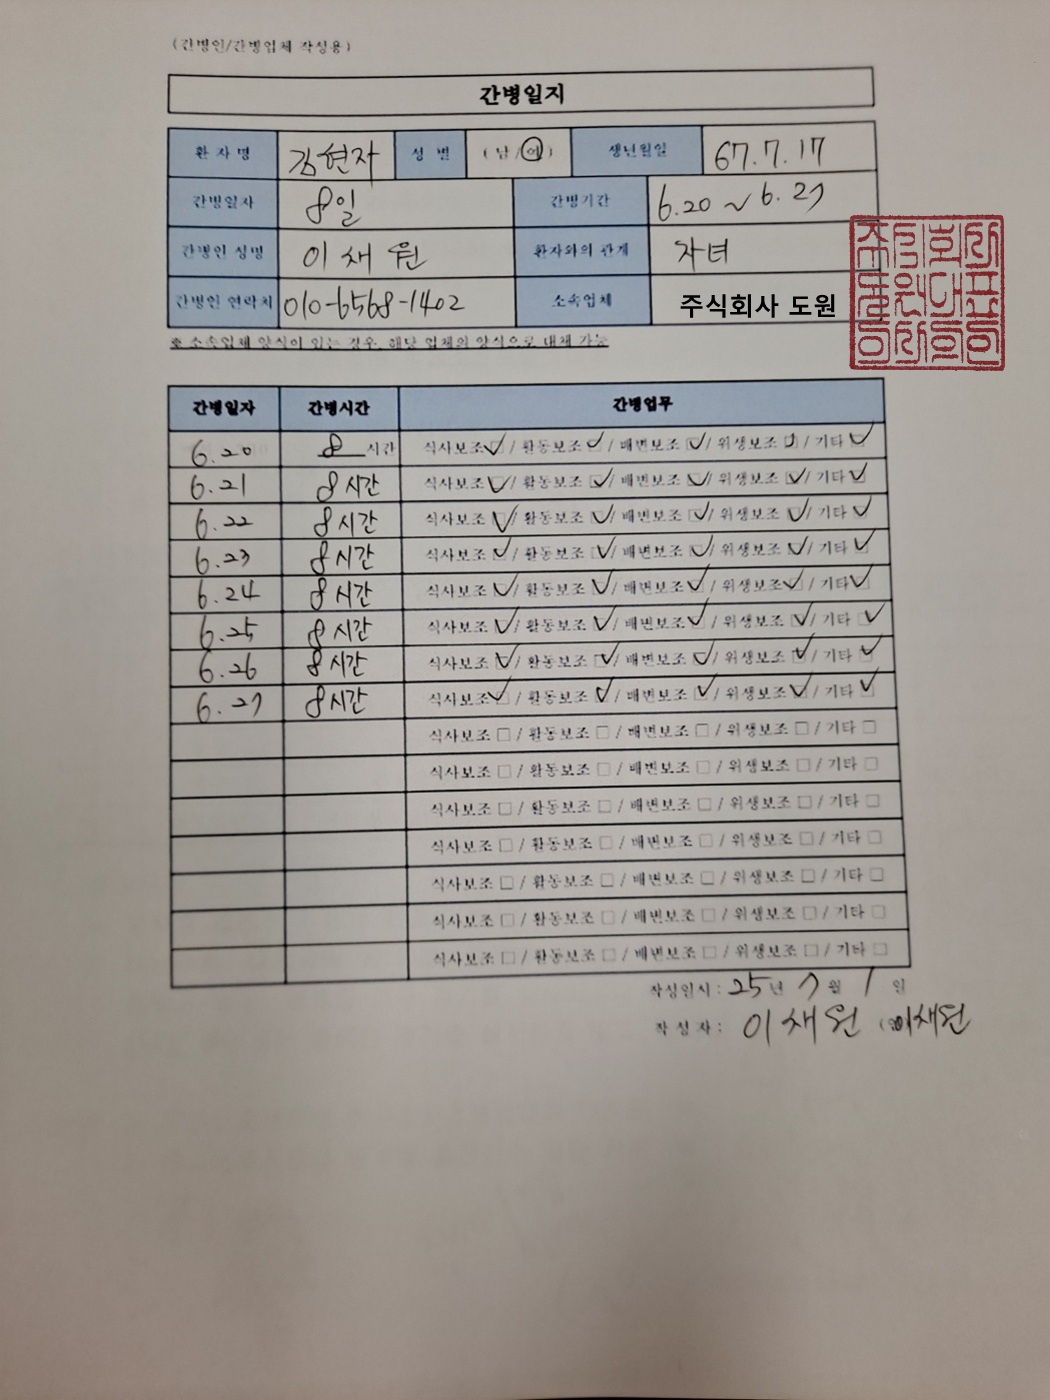 (간병인/간병업체 작성용)
간병일지
환 자 명 김현자 성 별 ( 남 / 여 ) 생년월일 67.7.17
간병일자 8일 간병기간 6.20 ~ 6.27
간병인 성명 이채원 환자와의 관계 자녀
간병인 연락처 010-6568-1402 소속업체 주식회사 도원
※ 소속업체 양식이 있는 경우, 해당 업체의 양식으로 대체 가능
간병일자 간병시간 간병업무
6.20 8 시간 식사보조 ☑ / 활동보조 ☑ / 배변보조 ☑ / 위생보조 ☑ / 기타 ☑
6.21 8시간 식사보조 ☑ / 활동보조 ☑ / 배변보조 ☑ / 위생보조 ☑ / 기타 ☑
6.22 8시간 식사보조 ☑ / 활동보조 ☑ / 배변보조 ☑ / 위생보조 ☑ / 기타 ☑
6.23 8시간 식사보조 ☑ / 활동보조 ☑ / 배변보조 ☑ / 위생보조 ☑ / 기타 ☑
6.24 8시간 식사보조 ☑ / 활동보조 ☑ / 배변보조 ☑ / 위생보조 ☑ / 기타 ☑
6.25 8시간 식사보조 ☑ / 활동보조 ☑ / 배변보조 ☑ / 위생보조 ☑ / 기타 ☑
6.26 8시간 식사보조 ☑ / 활동보조 ☑ / 배변보조 ☑ / 위생보조 ☑ / 기타 ☑
6.27 8시간 식사보조 ☑ / 활동보조 ☑ / 배변보조 ☑ / 위생보조 ☑ / 기타 ☑
식사보조 □ / 활동보조 □ / 배변보조 □ / 위생보조 □ / 기타 □
식사보조 □ / 활동보조 □ / 배변보조 □ / 위생보조 □ / 기타 □
식사보조 □ / 활동보조 □ / 배변보조 □ / 위생보조 □ / 기타 □
식사보조 □ / 활동보조 □ / 배변보조 □ / 위생보조 □ / 기타 □
식사보조 □ / 활동보조 □ / 배변보조 □ / 위생보조 □ / 기타 □
식사보조 □ / 활동보조 □ / 배변보조 □ / 위생보조 □ / 기타 □
식사보조 □ / 활동보조 □ / 배변보조 □ / 위생보조 □ / 기타 □
작성일시 : 25년 7월 1일
작 성 자 : 이채원 (이채원